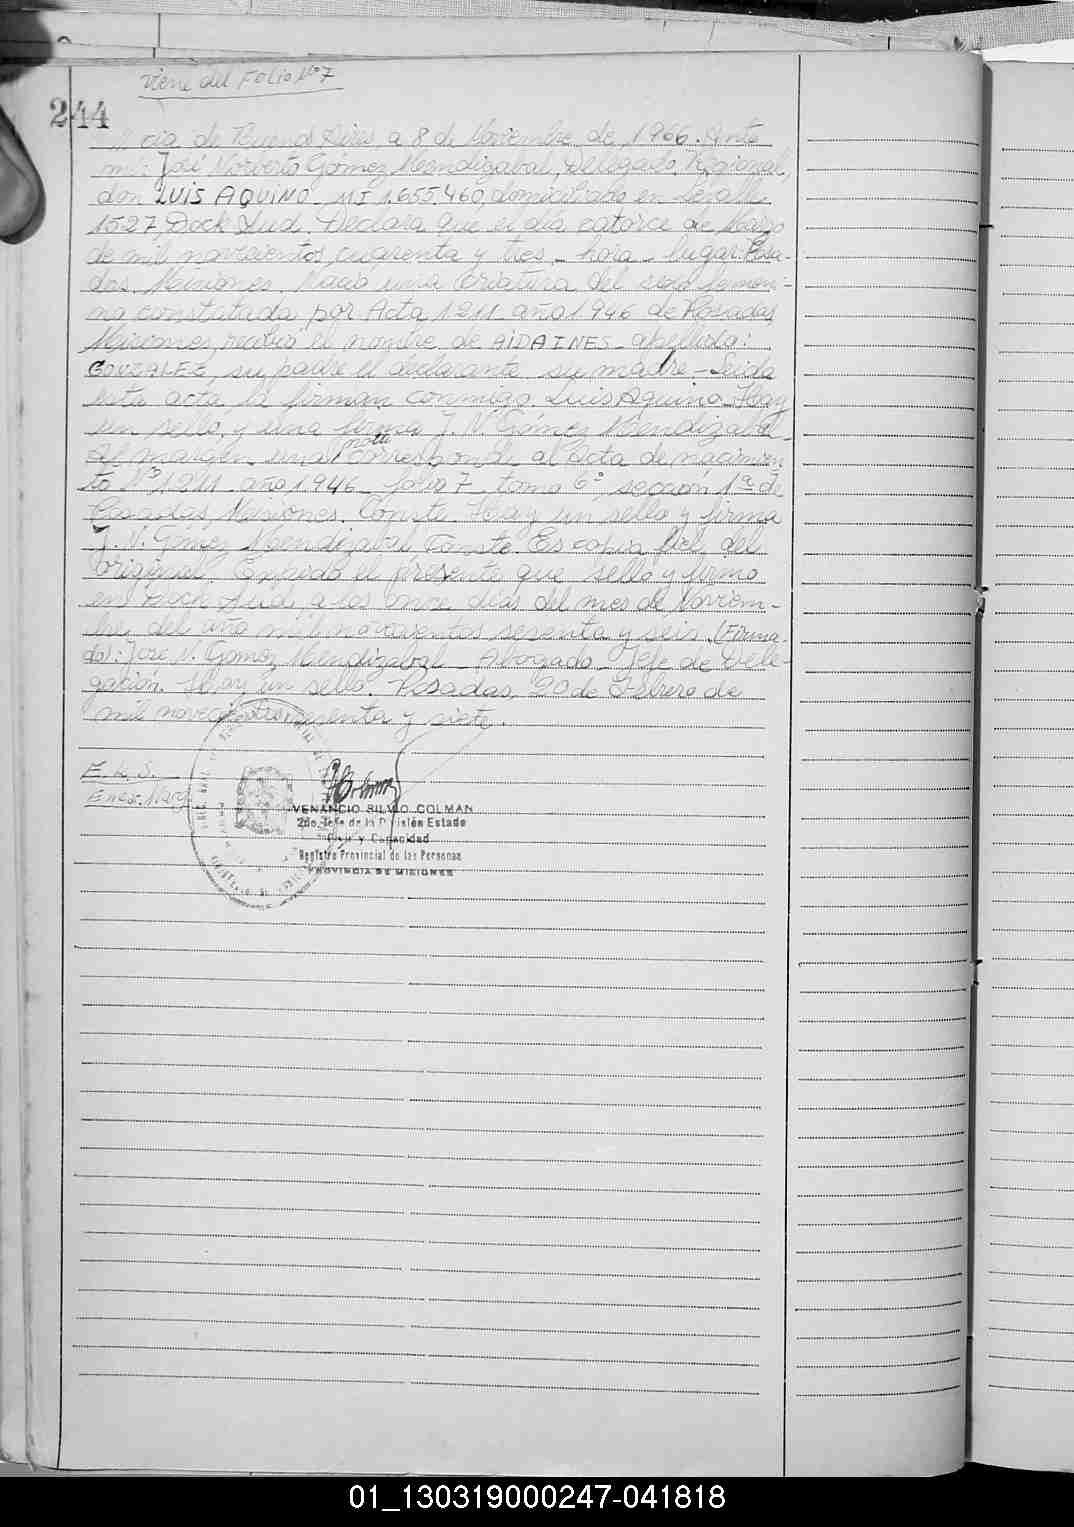 Viene del Folio Nº 7
244
"cia de Buenos Aires a 8 de Noviembre de 1966. Ante
mi: José Norberto Gómez Mendizabal, Delegado Regional,
don LUIS AQUINO MI 1.655.460, domiciliado en
1527, Dock Sud. Declara que el día catorce de Marzo
de mil novecientos cuarenta y tres - hora - lugar: Posa-
das, Misiones. Nació una criatura del sexo femeni-
no constatada por Acta 1211 año 1946 de Posadas
Misiones, recibió el nombre de AIDA INES - apellido:
GONZALEZ, su padre el declarante su madre - Leida
esta acta, la firman conmigo. Luis Aquino. Hay
un sello, y una firma J. N. Gómez Mendizabal -
Al margen una nota corresponde al acta de nacimien
to Nº 1211 año 1946 - folio 7, tomo 6º, sección 1ª de
Posadas, Misiones. Conste. Hay un sello y firma
J. N. Gómez Mendizabal Conste. Es copia fiel del
original. Expido el presente que sello y firmo
en Dock Sud, a los once días del mes de Noviem-
bre del año mil novecientos sesenta y seis. (Firma-
do): José N. Gomez Mendizabal - Abogado - Jefe de Dele-
gación. Hay un sello. Posadas, 20 de Febrero de
mil novecientos sesenta y siete.
VENANCIO SILVIO COLMAN
2do. Jefe de la División Estado
Civil y Capacidad
Registro Provincial de las Personas
PROVINCIA DE MISIONES
01_130319000247-041818